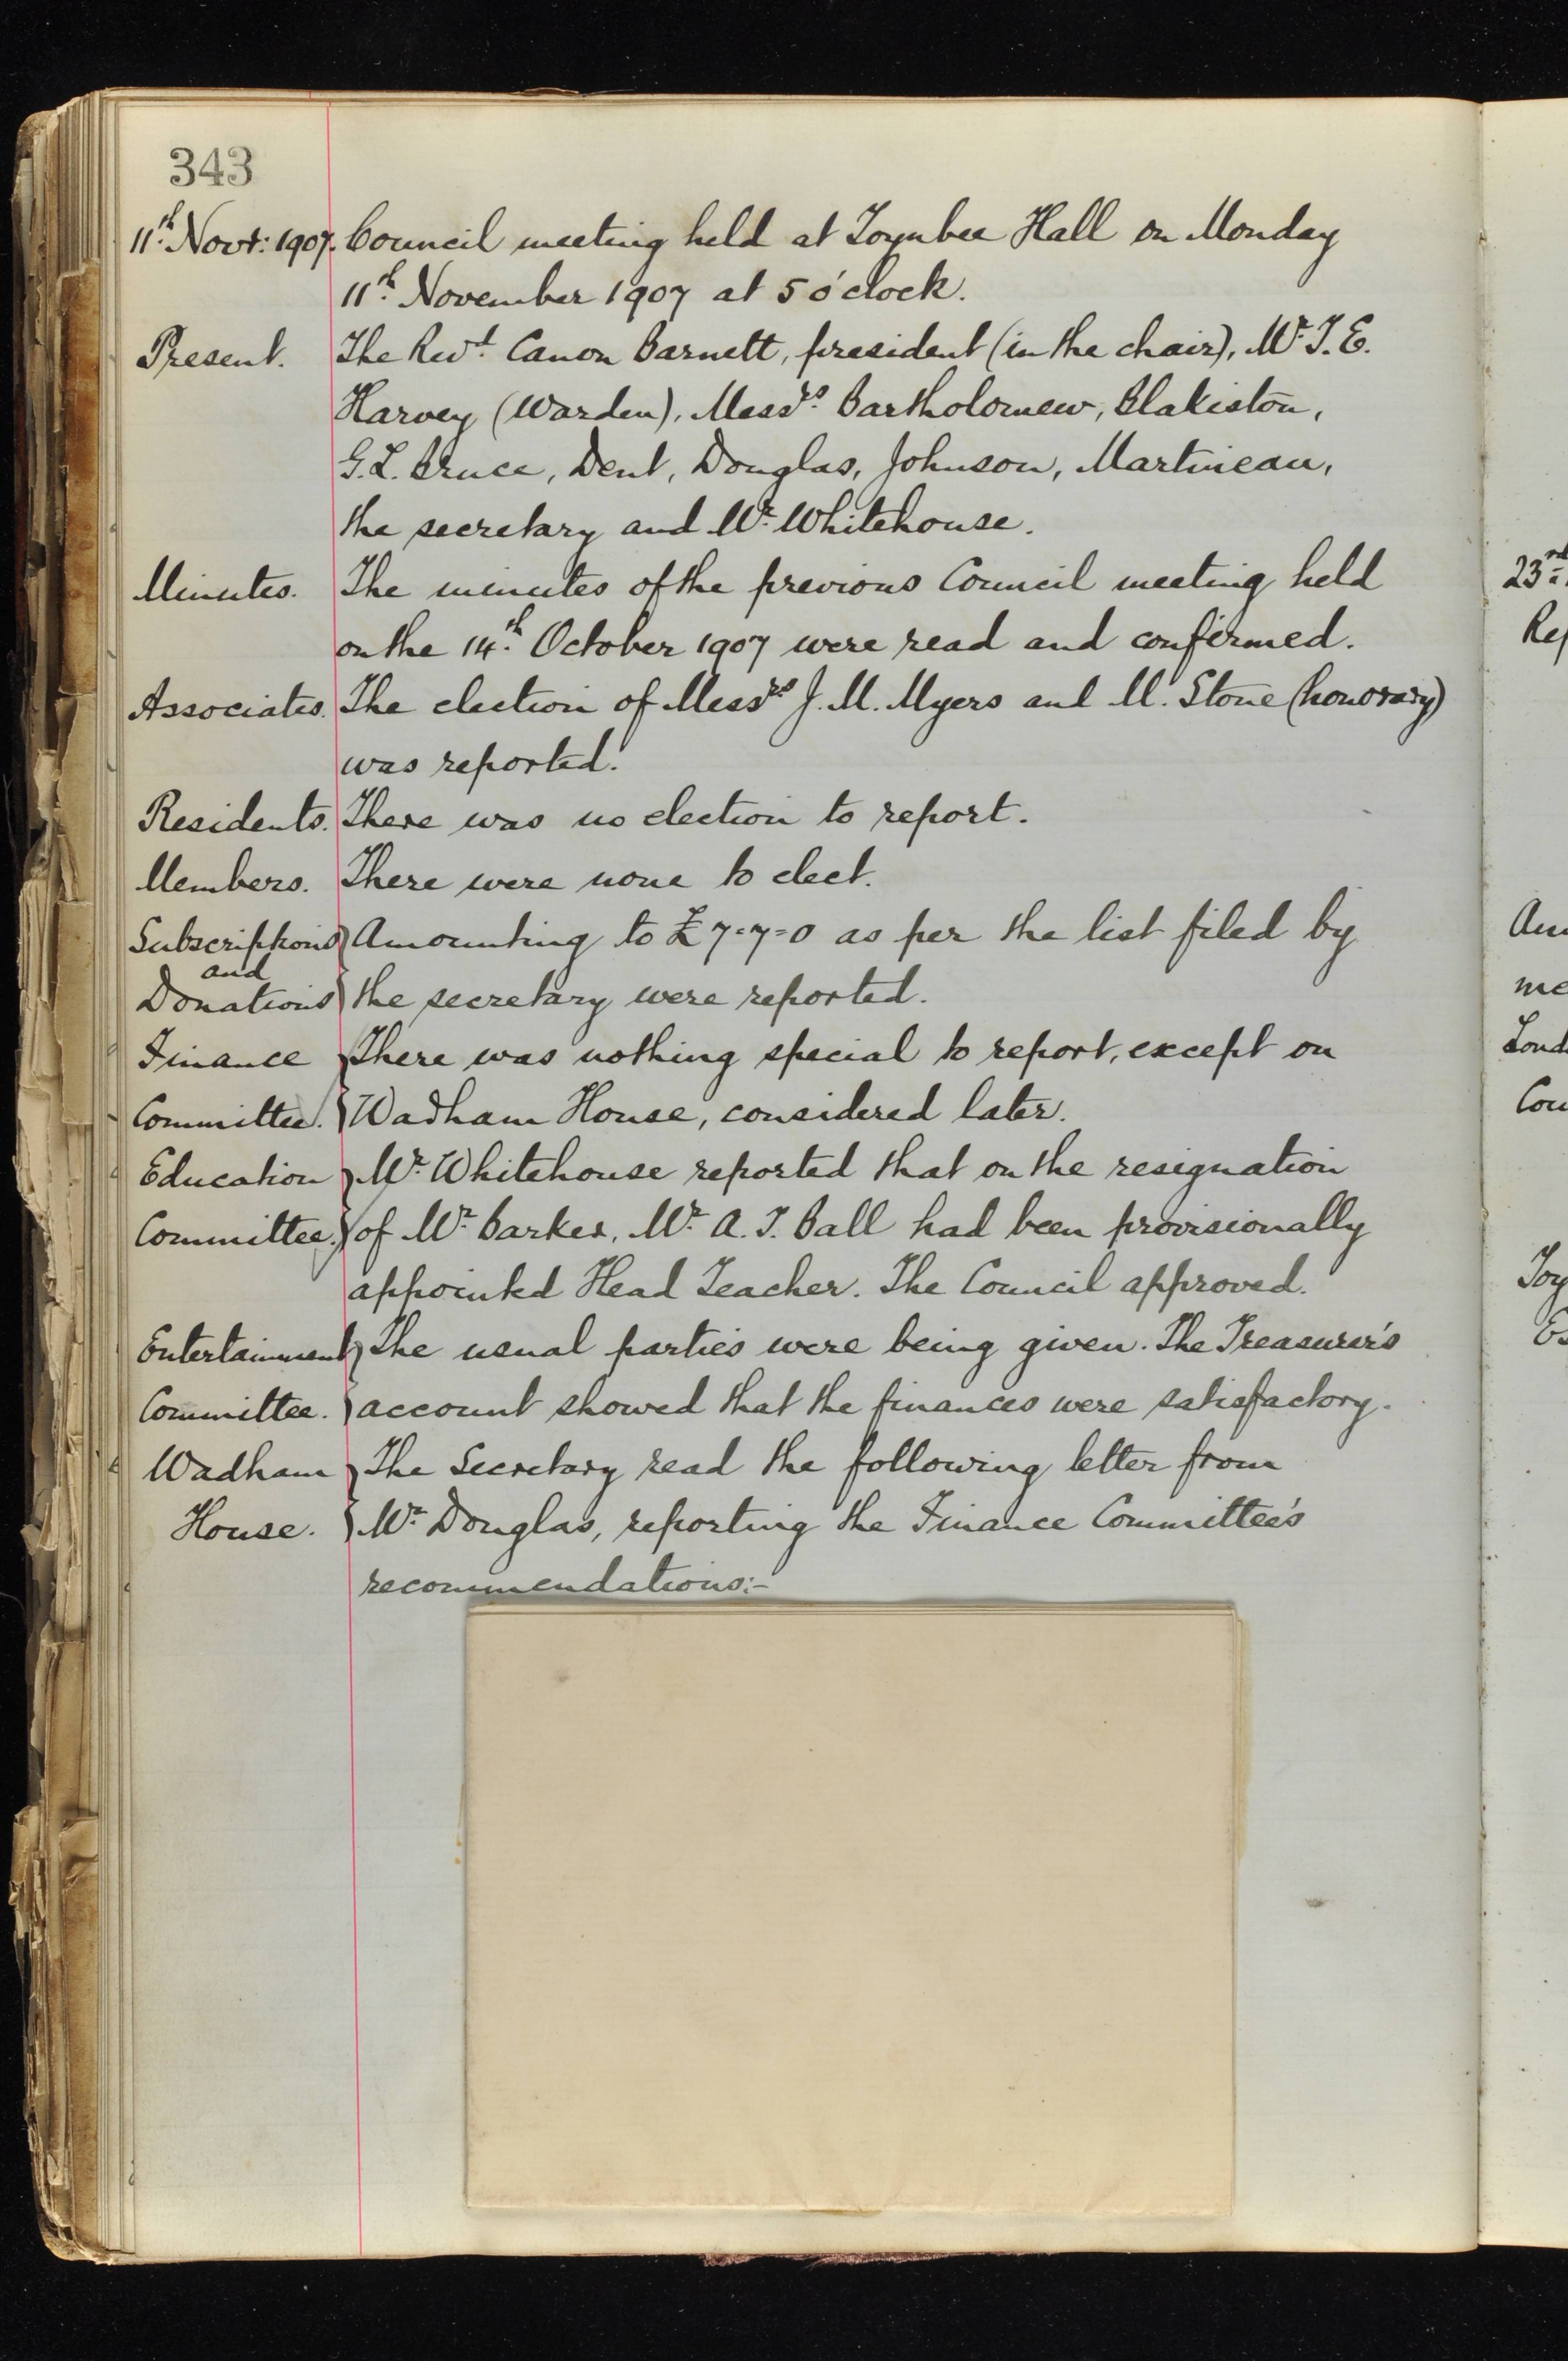 343
11th Novr: 1907. Council meeting held at Toynbee Hall on Monday
11th November 1907 at 5 o'clock.
Present. The Revd. Canon Barnett, president (in the chair), Mr. T. E.
Harvey (Warden), Messrs. Bartholomew, Blakiston,
G. L. Bruce, Dent, Douglas, Johnson, Martineau,
the secretary and Mr. Whitehouse.
Minutes. The minutes of the previous Council meeting held
on the 14th October 1907 were read and confirmed.
Associates. The election of Messrs J. M. Myers and M. Stone (honorary)
was reported.
Residents. There was no election to report.
Members. There were none to elect.
Subscriptions Amounting to £7=7=0 as per the list filed by
and
Donations the secretary were reported.
Finance There was nothing special to report, except on
Committee. Wadham House, considered later.
Education Mr. Whitehouse reported that on the resignation
Committee. of Mr. Barker, Mr. A. T. Ball had been provisionally
appointed Head Teacher. The Council approved.
Entertainment The usual parties were being given. The Treasurer's
Committee. account showed that the finances were satisfactory.
Wadham The Secretary read the following letter from
House. Mr. Douglas, reporting the Finance Committee's
recommendations:-
23rd